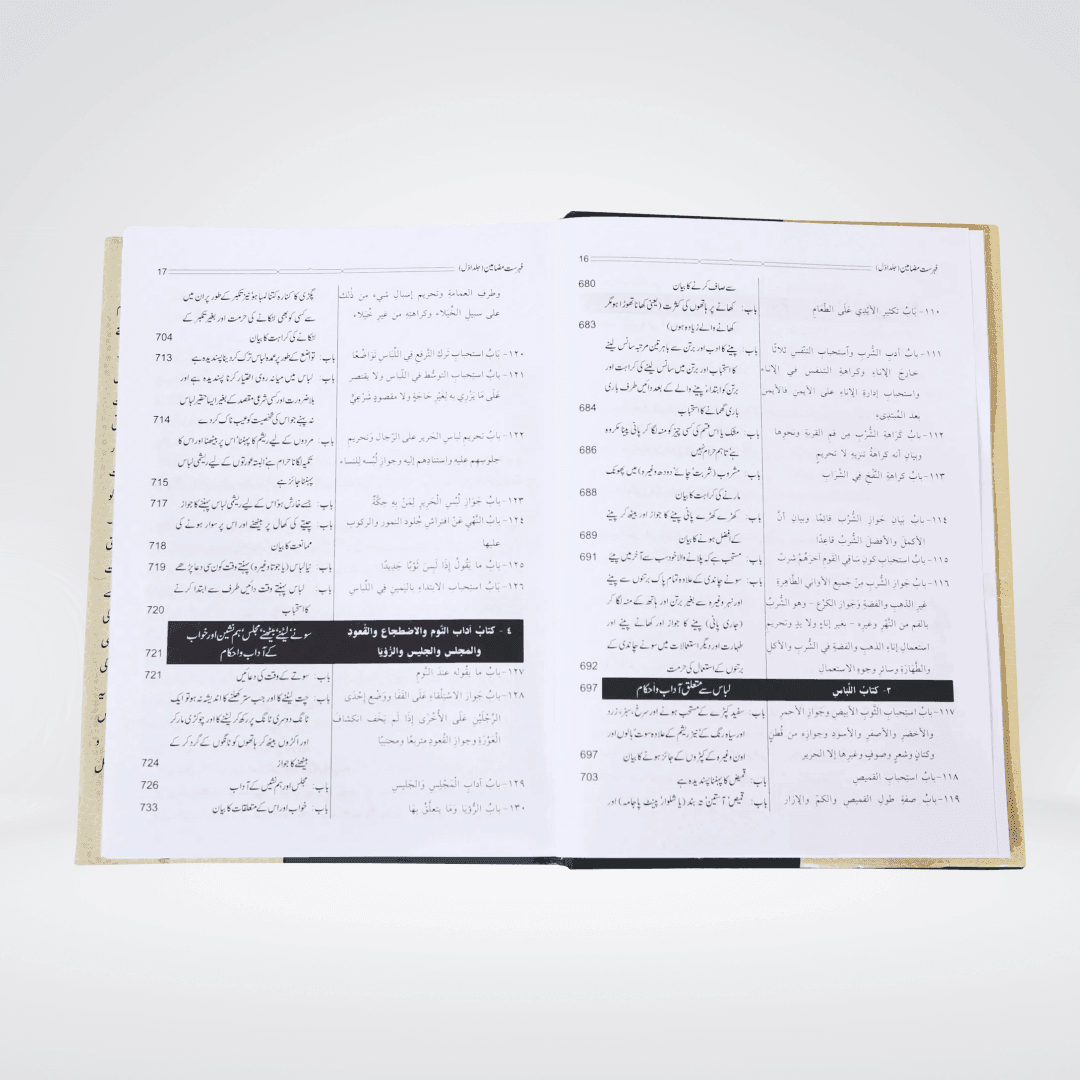 16 فہرست مضامین (جلد اوّل)
سے صاف کرنے کا بیان 680
١١٠- بَابُ تَكْثِيرِ الأَيْدِي عَلَى الطَّعَامِ
باب: کھانے پر ہاتھوں کی کثرت (یعنی کھانا تھوڑا ہو مگر
کھانے والے زیادہ ہوں) 683
١١١- بابُ أدبِ الشُّربِ واستحبابِ التنفّسِ ثلاثًا
خارجَ الإناءِ وكراهةِ التنفسِ في الإناءِ
واستحبابِ إدارةِ الإناءِ على الأيمنِ فالأيمنِ
بعد المبتدِىءِ
باب: پینے کا ادب اور برتن سے باہر تین مرتبہ سانس لینے
کا استحباب اور برتن میں سانس لینے کی کراہت اور
برتن کو ابتداءً پینے والے کے بعد دائیں طرف باری
باری گھمانے کا استحباب 684
١١٢- بابُ كَرَاهَةِ الشُّرْبِ مِن فمِ القربةِ ونحوِها
وبيانِ أنه كراهةُ تنزيهٍ لا تحريمٍ
باب: مشک یا اس قسم کی کسی چیز کو منہ لگا کر پانی پینا مکروہ
ہے تاہم حرام نہیں 686
١١٣- بابُ كراهةِ النَّفْخِ فِي الشَّرَابِ
باب: مشروب (شربت' چائے' دودھ وغیرہ) میں پھونک
مارنے کی کراہت کا بیان 688
١١٤- بابُ بَيَانِ جَوَازِ الشُّرْبِ قائِمًا وبيانِ أنَّ
الأكملَ والأفضلَ الشُّربُ قاعدًا
باب: کھڑے کھڑے پانی پینے کا جواز اور بیٹھ کر پینے
کے افضل ہونے کا بیان 689
١١٥- بابُ استحبابِ كونِ ساقي القومِ آخرَهُمْ شربًا
باب: مستحب ہے کہ پلانے والا خود سب سے آخر میں پیئے 691
١١٦- بابُ جَوَازِ الشُّربِ مِنْ جميعِ الأواني الطَّاهرةِ
غيرِ الذهبِ والفضةِ وَجَوازِ الكَرْعِ - وهو الشُّربُ
بالفمِ من النَّهْرِ وغيرِهِ - بغيرِ إناءٍ ولا يدٍ وتحريمِ
استعمالِ إناءِ الذهبِ والفضةِ في الشُّربِ والأكلِ
والطَّهارةِ وسائرِ وجوهِ الاستعمالِ
باب: سونے چاندی کے علاوہ تمام پاک برتنوں سے پینے
اور نہر وغیرہ سے بغیر برتن اور ہاتھ کے منہ لگا کر
(جاری پانی) پینے کا جواز اور کھانے پینے اور
طہارت اور دیگر استعمالات میں سونے چاندی کے
برتنوں کے استعمال کی حرمت 692
٣- كتابُ اللّباسِ لباس سے متعلق آداب و احکام 697
١١٧- بابُ استحبابِ الثَّوبِ الأبيضِ وجوازِ الأحمرِ
والأخضرِ والأصفرِ والأسودِ وجوازِه من قُطنٍ
وكتانٍ وشعرٍ وصوفٍ وغيرِها إلا الحريرَ
باب: سفید کپڑے کے مستحب ہونے اور سرخ' سبز' زرد
اور سیاہ رنگ کے نیز ریشم کے علاوہ سوت' بالوں اور
اون وغیرہ کے کپڑوں کے جائز ہونے کا بیان 697
١١٨- بابُ استحبابِ القميصِ
باب: قمیص کا پہننا پسندیدہ ہے 703
١١٩- بابُ صفةِ طولِ القميصِ والكمِّ والإزارِ
باب: قمیص' آستین' تہ بند (یا شلوار' پینٹ' پاجامہ) اور
17 فہرست مضامین (جلد اوّل)
وطرفِ العمامةِ وتحريمِ إسبالِ شيءٍ من ذٰلك
على سبيلِ الخُيلاءِ وكراهتِهِ من غيرِ خُيلاءَ
پگڑی کا کنارہ کتنا لمبا ہو' نیز تکبر کے طور پر ان میں
سے کسی کو بھی لٹکانے کی حرمت اور بغیر تکبر کے
لٹکانے کی کراہت کا بیان 704
١٢٠- بَابُ استحبابِ تَركِ التّرفُّعِ فِي اللّبَاسِ تَوَاضُعًا
باب: تواضع کے طور پر عمدہ لباس ترک کر دینا پسندیدہ ہے 713
١٢١- بَابُ استحبابِ التوسُّطِ في اللّباسِ ولا يقتصرُ
عَلَى مَا يَزْرِي بِهِ لِغَيْرِ حَاجَةٍ ولا مقصودٍ شَرْعِيٍّ
باب: لباس میں میانہ روی اختیار کرنا پسندیدہ ہے اور
بلا ضرورت اور کسی شرعی مقصد کے بغیر ایسا حقیر لباس
نہ پہنے جو اس کی شخصیت کو عیب ناک کر دے 714
١٢٢- بابُ تحريمِ لباسِ الحريرِ على الرّجالِ وتحريمِ
جلوسِهم عليه واستنادِهم إليه وجوازِ لُبْسِه للنساءِ
باب: مردوں کے لیے ریشم کا پہننا' اس پر بیٹھنا اور اس کا
تکیہ لگانا حرام ہے' البتہ عورتوں کے لیے ریشمی لباس
پہننا جائز ہے 715
١٢٣- بابُ جَوَازِ لُبْسِ الْحَرِيرِ لِمَنْ بِهِ حِكَّةٌ
باب: جسے خارش ہو' اس کے لیے ریشمی لباس پہننے کا جواز 717
١٢٤- بابُ النَّهْيِ عَنْ افتراشِ جُلُودِ النمورِ والركوبِ
عليها
باب: چیتے کی کھال پر بیٹھنے اور اس پر سوار ہونے کی
ممانعت کا بیان 718
١٢٥- بابُ مَا يَقُولُ إِذَا لَبِسَ ثَوْبًا جَدِيدًا
باب: نیا لباس (یا جوتا وغیرہ) پہنتے وقت کون سی دعا پڑھے 719
١٢٦- بابُ استحبابِ الابتداءِ باليَمينِ فِي اللّبَاسِ
باب: لباس پہنتے وقت دائیں طرف سے ابتدا کرنے
کا استحباب 720
٤- كتابُ آدابِ النَّومِ والاضطجاعِ والقُعودِ
والمجلسِ والجليسِ والرُّؤيَا
سونے' لیٹنے' بیٹھنے' مجلس' ہم نشین اور خواب
کے آداب و احکام 721
١٢٧- بابُ ما يقُولُه عندَ النَّومِ
باب: سونے کے وقت کی دعائیں 721
١٢٨- بابُ جَوَازِ الاسْتِلْقَاءِ عَلَى القَفَا وَوَضْعِ إِحْدَى
الرِّجْلَيْنِ عَلَى الأُخْرَى إِذَا لَم يَخَفِ انكشافَ
الْعَوْرَةِ وجوازِ القُعودِ متربعًا ومحتبيًا
باب: چت لیٹنے کا اور جب ستر کھلنے کا اندیشہ نہ ہو تو ایک
ٹانگ دوسری ٹانگ پر رکھ کر لیٹنے کا اور چوکڑی مار کر
اور اکڑوں بیٹھ کر ہاتھوں کو ٹانگوں کے گرد کر کے
بیٹھنے کا جواز 724
١٢٩- بابُ آدابِ الْمَجْلِسِ وَالجَلِيسِ
باب: مجلس اور ہم نشین کے آداب 726
١٣٠- بابُ الرُّؤيا وَمَا يتعلَّقُ بِهَا
باب: خواب اور اس کے متعلقات کا بیان 733